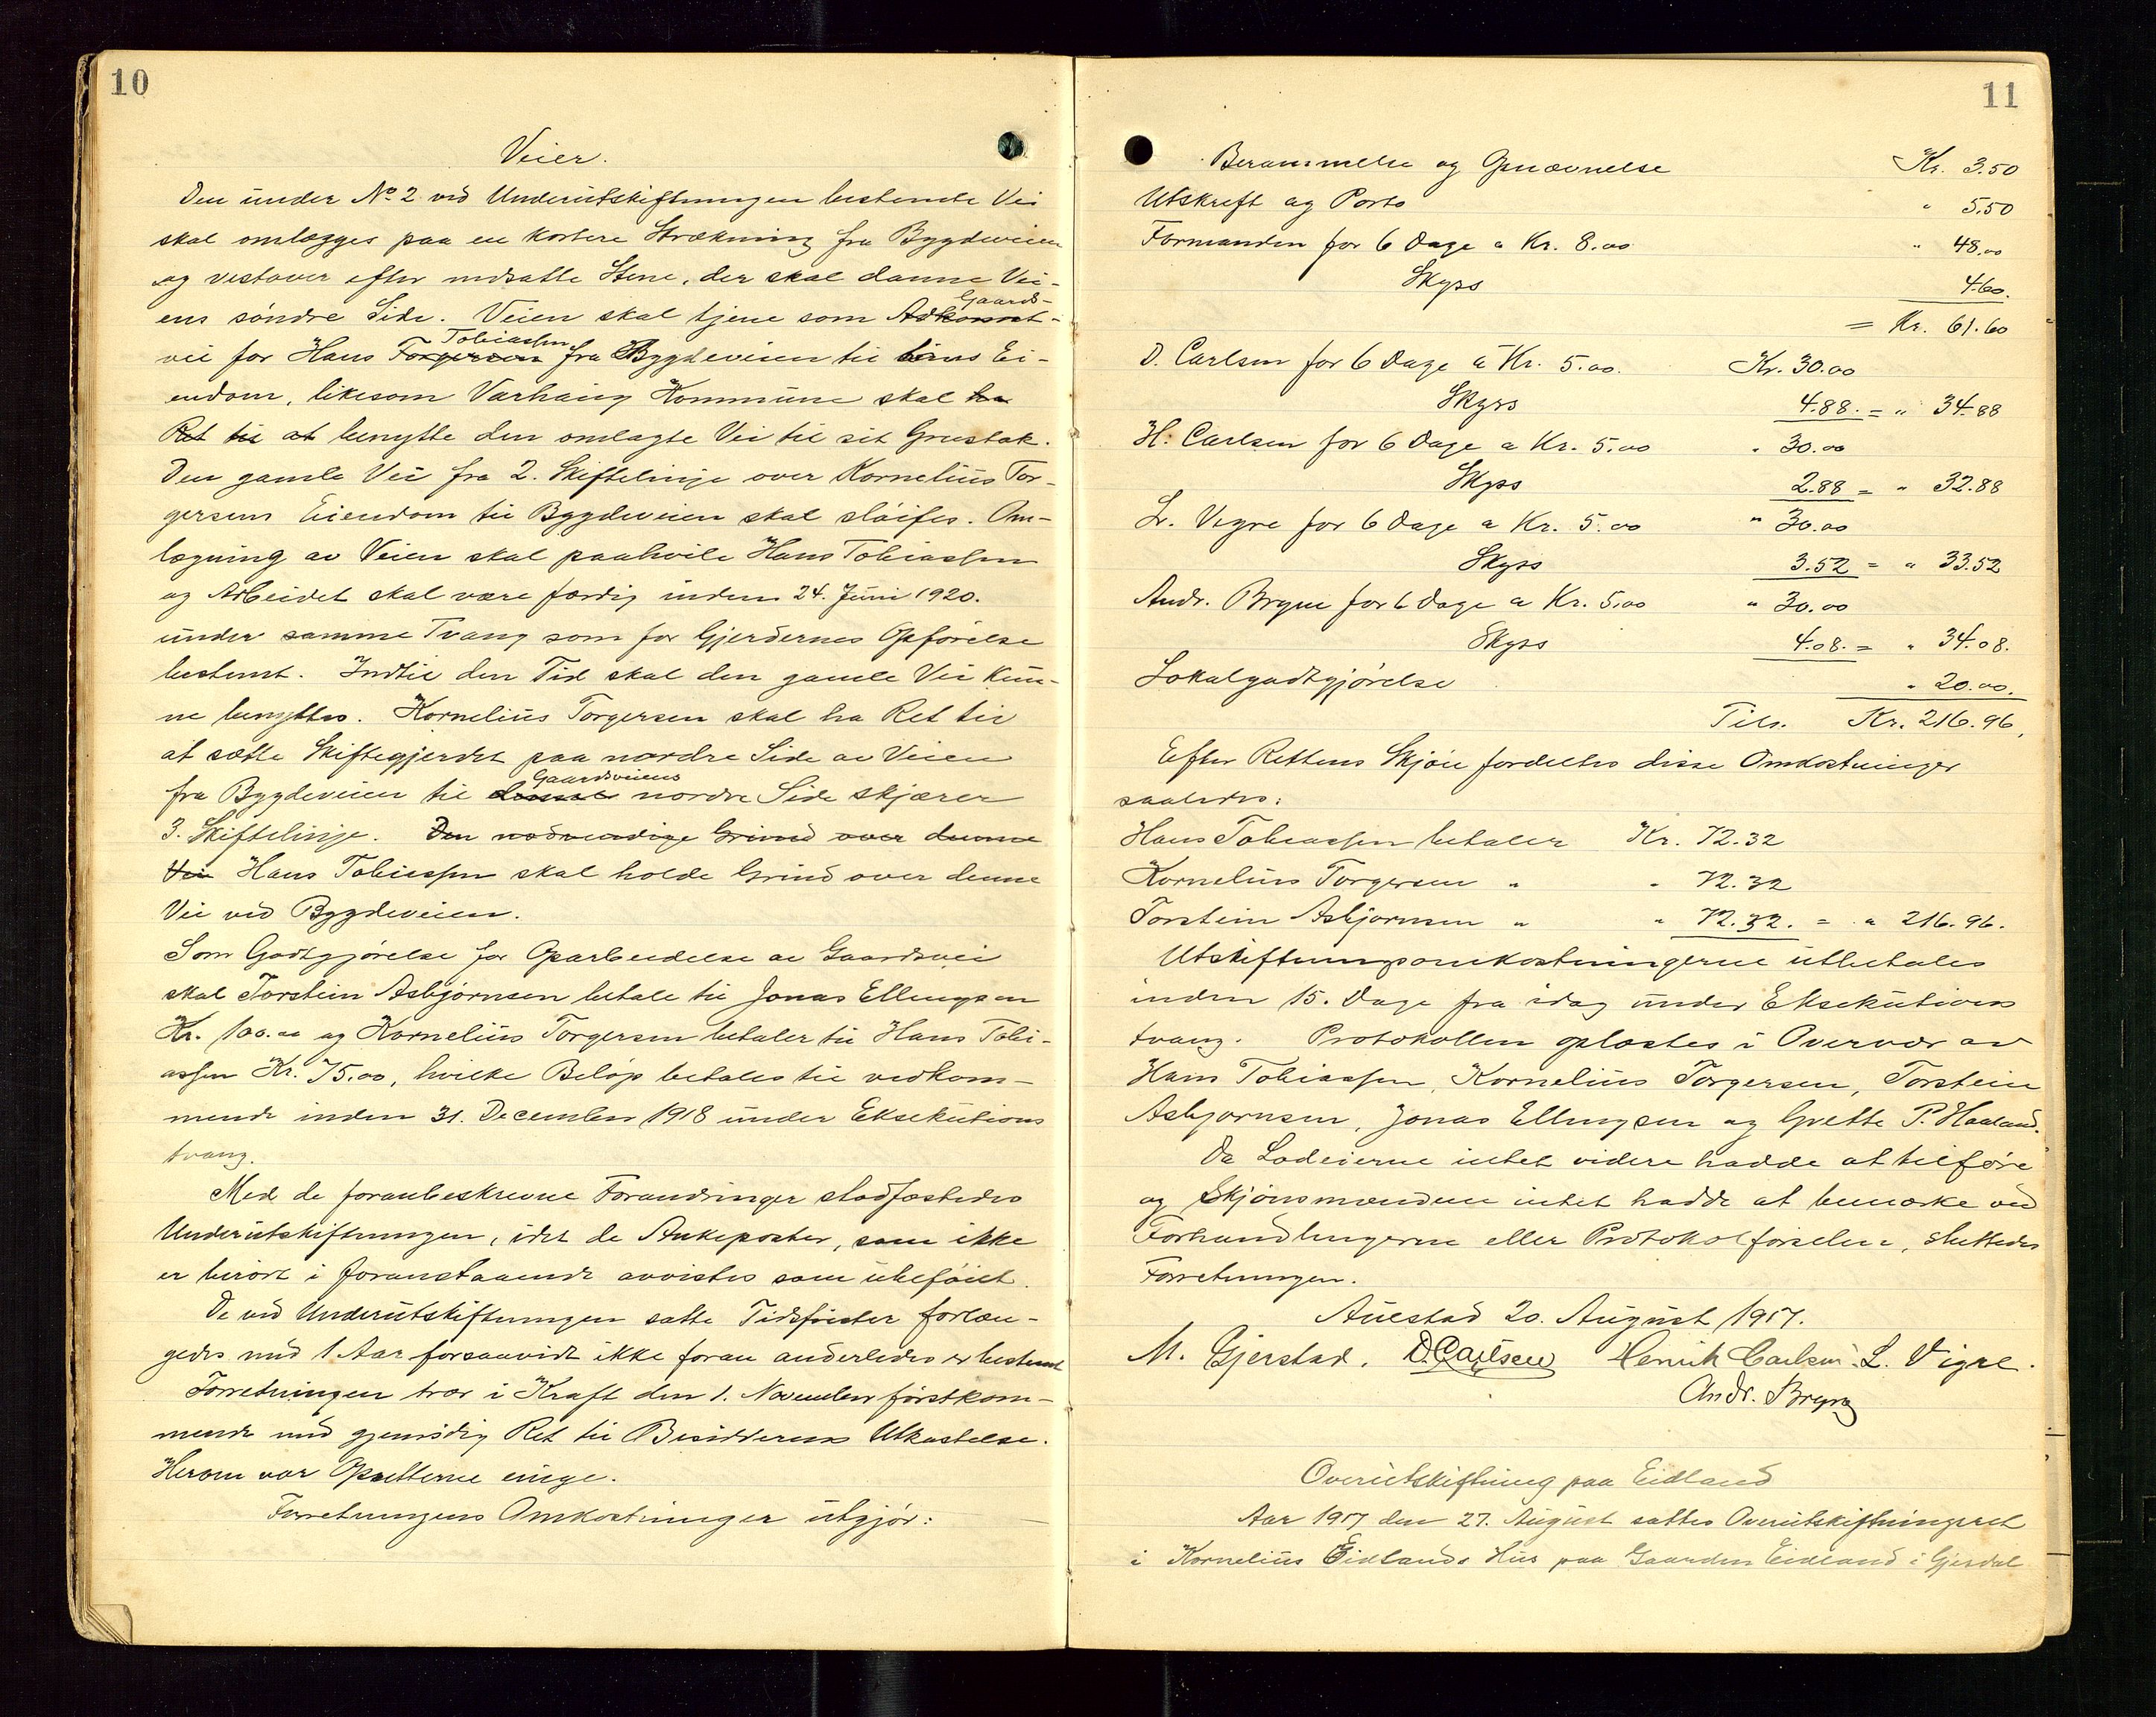 10
Veier.
Den under No 2 ved Underutskiftningen bestemte Vei
skal omlægges paa en kortere Strækning fra Bygdeveien
og vestover efter nedsatte Stene, der skal danne Vei-
ens söndre Side. Veien skal tjene som Adkomst- Gaards-
vei for Hans Torgersen Tobiassen fra Bygdeveien til hans Ei-
endom, likesom Varhaug Kommune skal ha
Ret til at benytte den omlagte Vei til sit Grustak.
Den gamle Vei fra 2. Skiftelinje over Kornelius Tor-
gersens Eiendom til Bygdeveien skal slöifes. Om-
lægning av Veien skal paahvile Hans Tobiassen
og Arbeidet skal være færdig inden 24. Juni 1920.
under samme Tvang som for Gjerdernes Opförelse
bestemt. Indtil den Tid skal den gamle Vei kun-
ne benyttes. Kornelius Torgersen skal ha Ret til
at sætte Skiftegjerdet paa nordre Side av Veien
fra Bygdeveien til denne Gaardsveiens nordre Side skjærer
3. Skiftelinje. Den nödvendige Grind over denne
Vei Hans Tobiassen skal holde Grind over denne
Vei ved Bygdeveien.
Som Godtgjörelse for Oparbeidelse av Gaardsvei
skal Torstein Asbjörnsen betale til Jonas Ellingsen
Kr. 100.00 og Kornelius Torgersen betaler til Hans Tobi-
assen Kr. 75.00, hvilke Belöp betales til vedkom-
mende inden 31. December 1918 under Eksekutions
tvang.
Med de foranbeskrevne Forandringer stadfæstedes
Underutskiftningen, idet de Ankeposter, som ikke
er berört i foranstaaende avvistes som ubeföiet.
De ved Underutskiftningen satte Tidsfrister forlæn-
gedes med 1 Aar forsaavidt ikke foran anderledes er bestemt
Forretningen trær i Kraft den 1. November förstkom-
mende med gjensidig Ret til Besidderens Utkastelse.
Herom var Opsitterne enige.
Forretningens Omkostninger utgjör:
11
Berammelse og Opnævnelse Kr. 3.50
Utskrift og Porto " 5.50
Formanden for 6 Dage a Kr. 8.00 " 48.00
Skyss 4.60.
= Kr. 61.60
D. Carlsen for 6 Dage a Kr. 5.00. Kr. 30.00
Skyss 4.88. = " 34.88
H. Carlsen for 6 Dage a Kr. 5.00 " 30.00
Skyss 2.88 = " 32.88
L. Vigre for 6 Dage a Kr. 5.00 " 30.00
Skyss 3.52 = " 33.52
Andr. Bryne for 6 Dage a Kr. 5.00 " 30.00
Skyss 4.08. = " 34.08.
Lokalgodtgjörelse " 20.00.
Tils. Kr. 216.96,
Efter Rettens Skjön fordeltes disse Omkostninger
saaledes:
Hans Tobiassen betaler Kr. 72.32
Kornelius Torgersen " " 72.32
Torstein Asbjörnsen " " 72.32. = " 216.96.
Utskiftningsomkostningerne utbetales
inden 15. Dage fra idag under Eksekutions
tvang. Protokollen oplæstes i Overvær av
Hans Tobiassen, Kornelius Torgersen, Torstein
Asbjörnsen, Jonas Ellingsen og Grette P. Haaland.
Da Lodeierne intet videre hadde at tilföre
og Skjönsmændene intet hadde at bemærke ved
Forhandlingerne eller Protokolförselen, sluttedes
Forretningen.
Auestad 20. August 1917.
M. Gjerstad. D. Carlsen Henrik Carlsen. L. Vigre.
Andr. Bryne
Overutskiftning paa Eidland
Aar 1917 den 27. August sattes Overutskiftningsret
i Kornelius Eidlands Hus paa Gaarden Eidland i Gjesdal